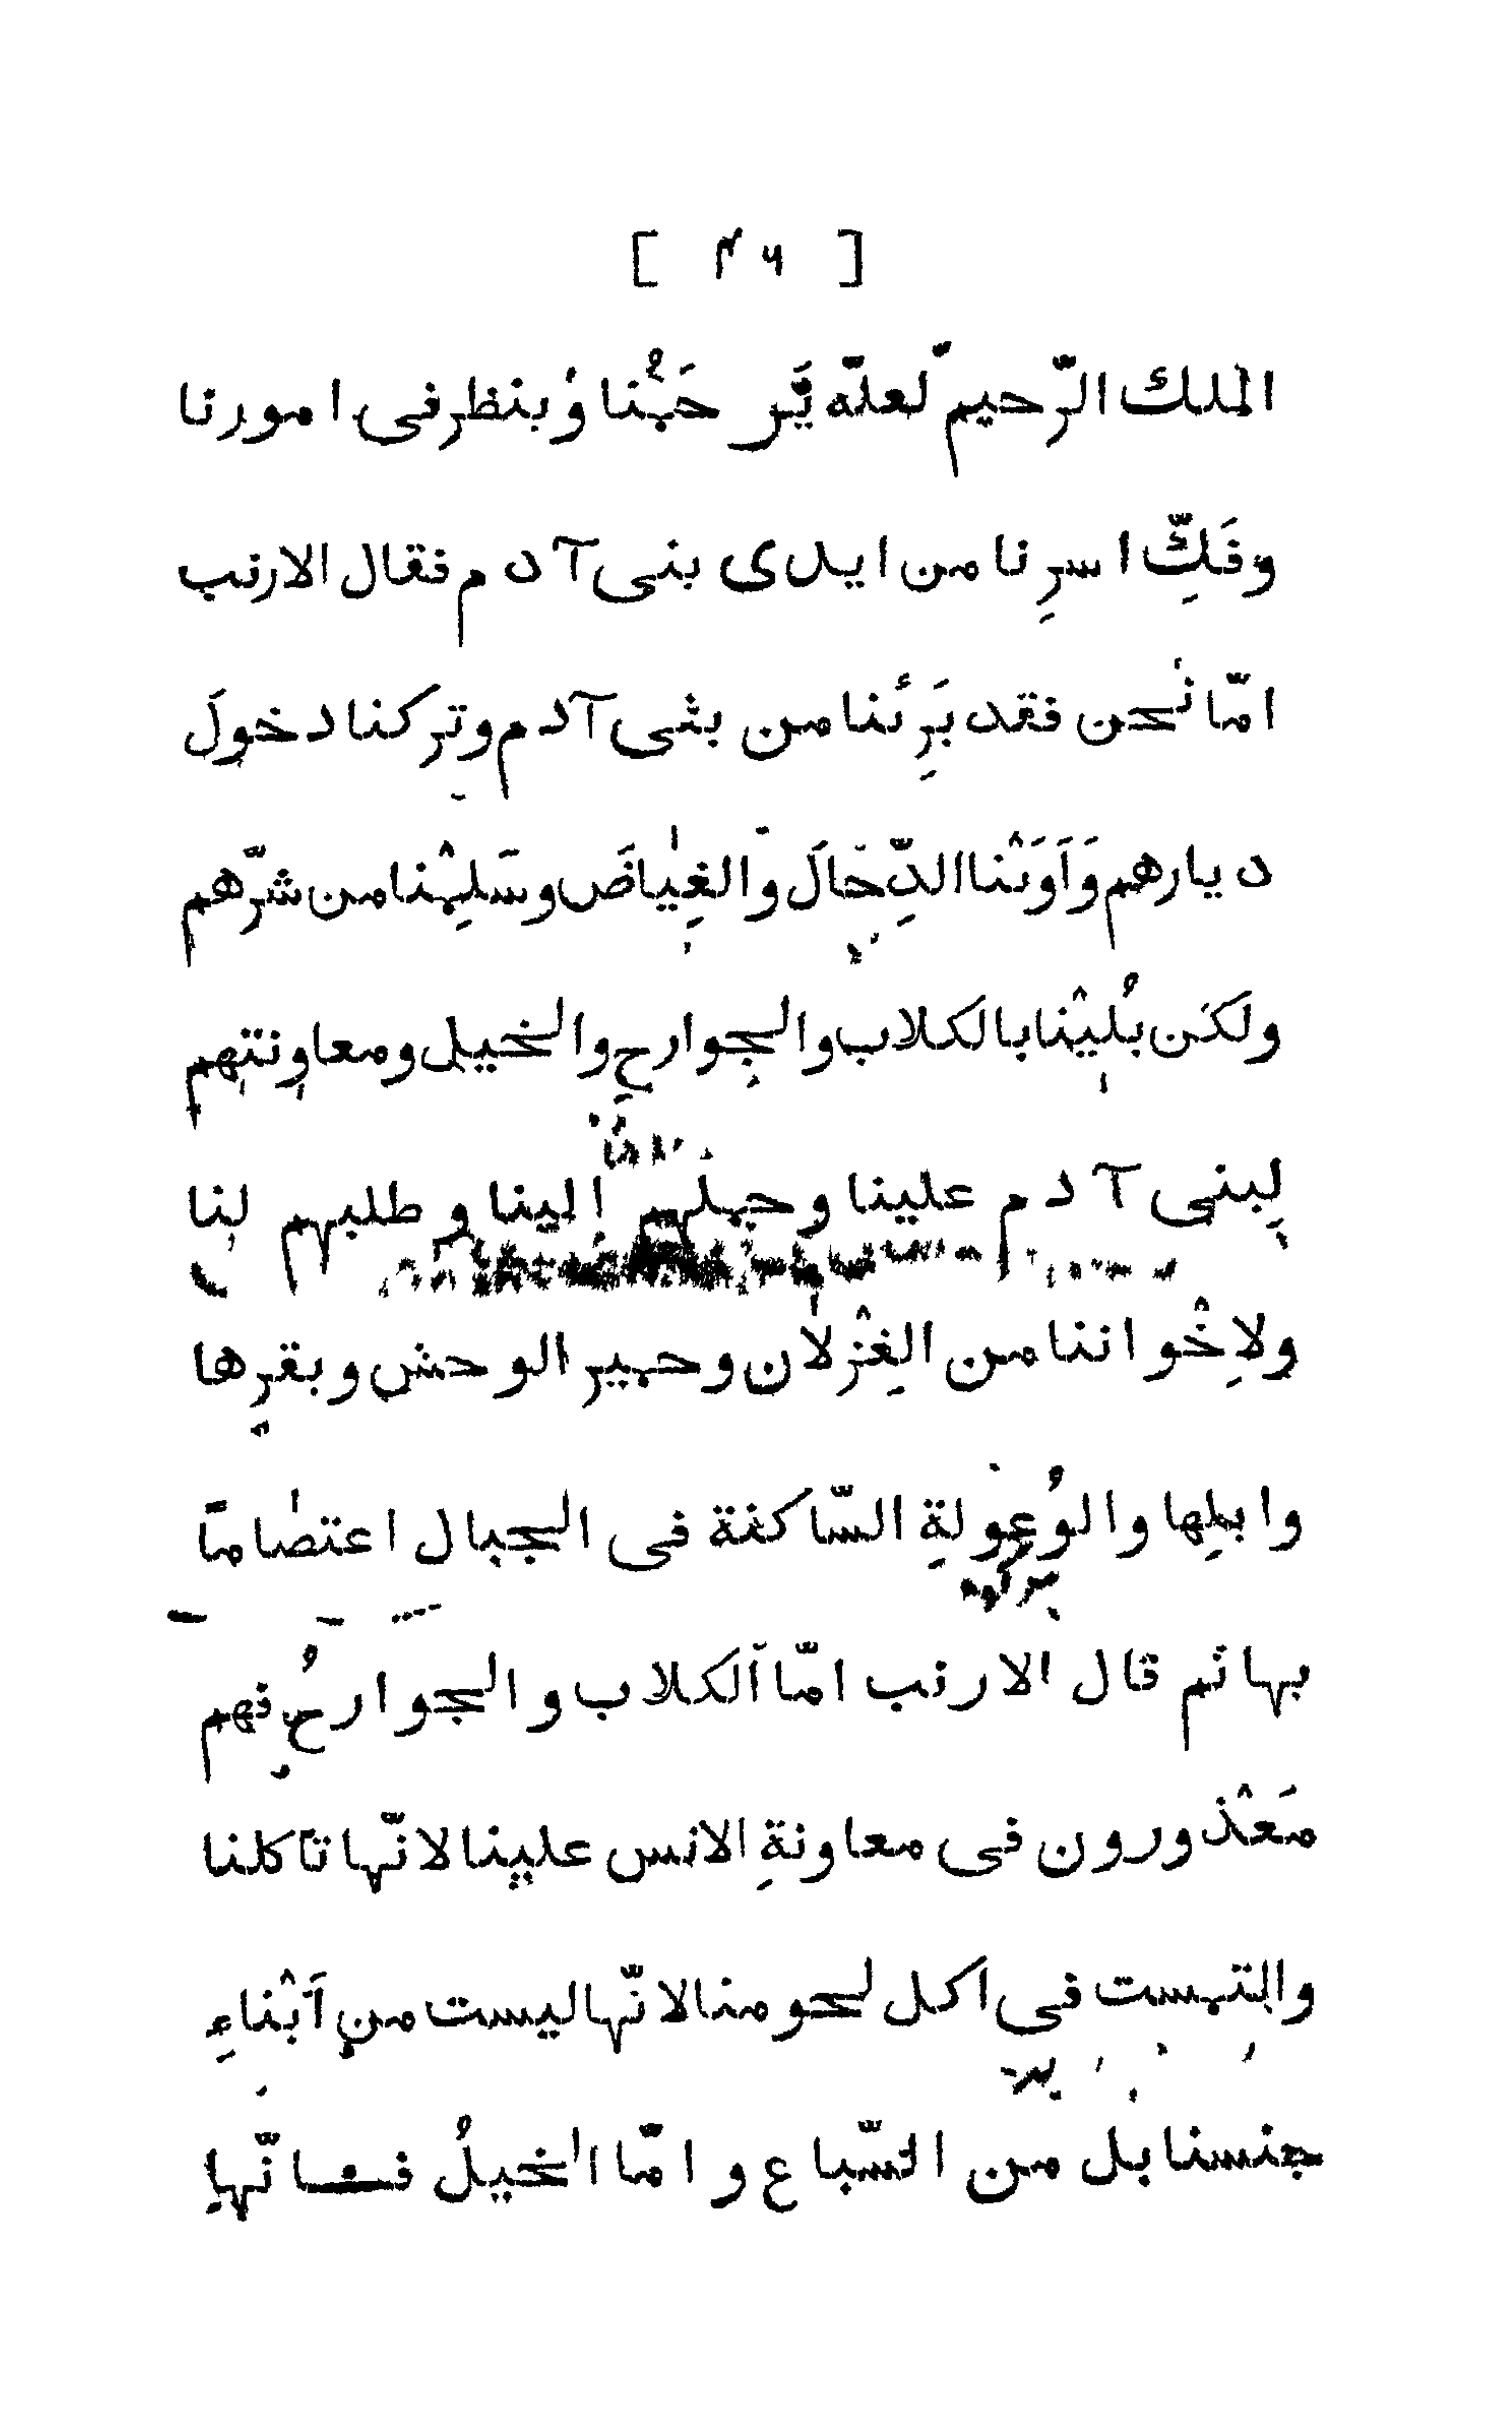 [ ۴۶ ]
الملك الرّحيم لعلّه يَر حَمُنا وُينظر فى امورنا
وفَكِّ اسرِنا من ايدى بنى آدم فقال الارنب
امّا نحن فقد بَرِئنا من بنى آدم وتركنا دخولَ
ديارهم وَاَوَتْنا الدِّحالَ والغِياضَ وسَلِمْنا من شرّهم
ولكن بُلِيْنا بالكلاب والجوارحِ والخيل ومعاونتهم
لِبنى آدم علينا وحملهم إلينا وطلبهم لنا
ولاِخْواننا من الغِزْلان وحمير الوحش وبقرِها
وابلِها والوُعولةِ السّاكنة فى الجبال اعتصامًا
بها ثم قال الارنب امّا الكلاب والجوارحُ فهم
مَعْذورون فى معاونةِ الانس علينا لانّها تاكلنا
فى اكل لحومنا لانّها ليست من اَبْناءِ
جنسنا بل من السّباع وامّا الخيلُ فــانّها